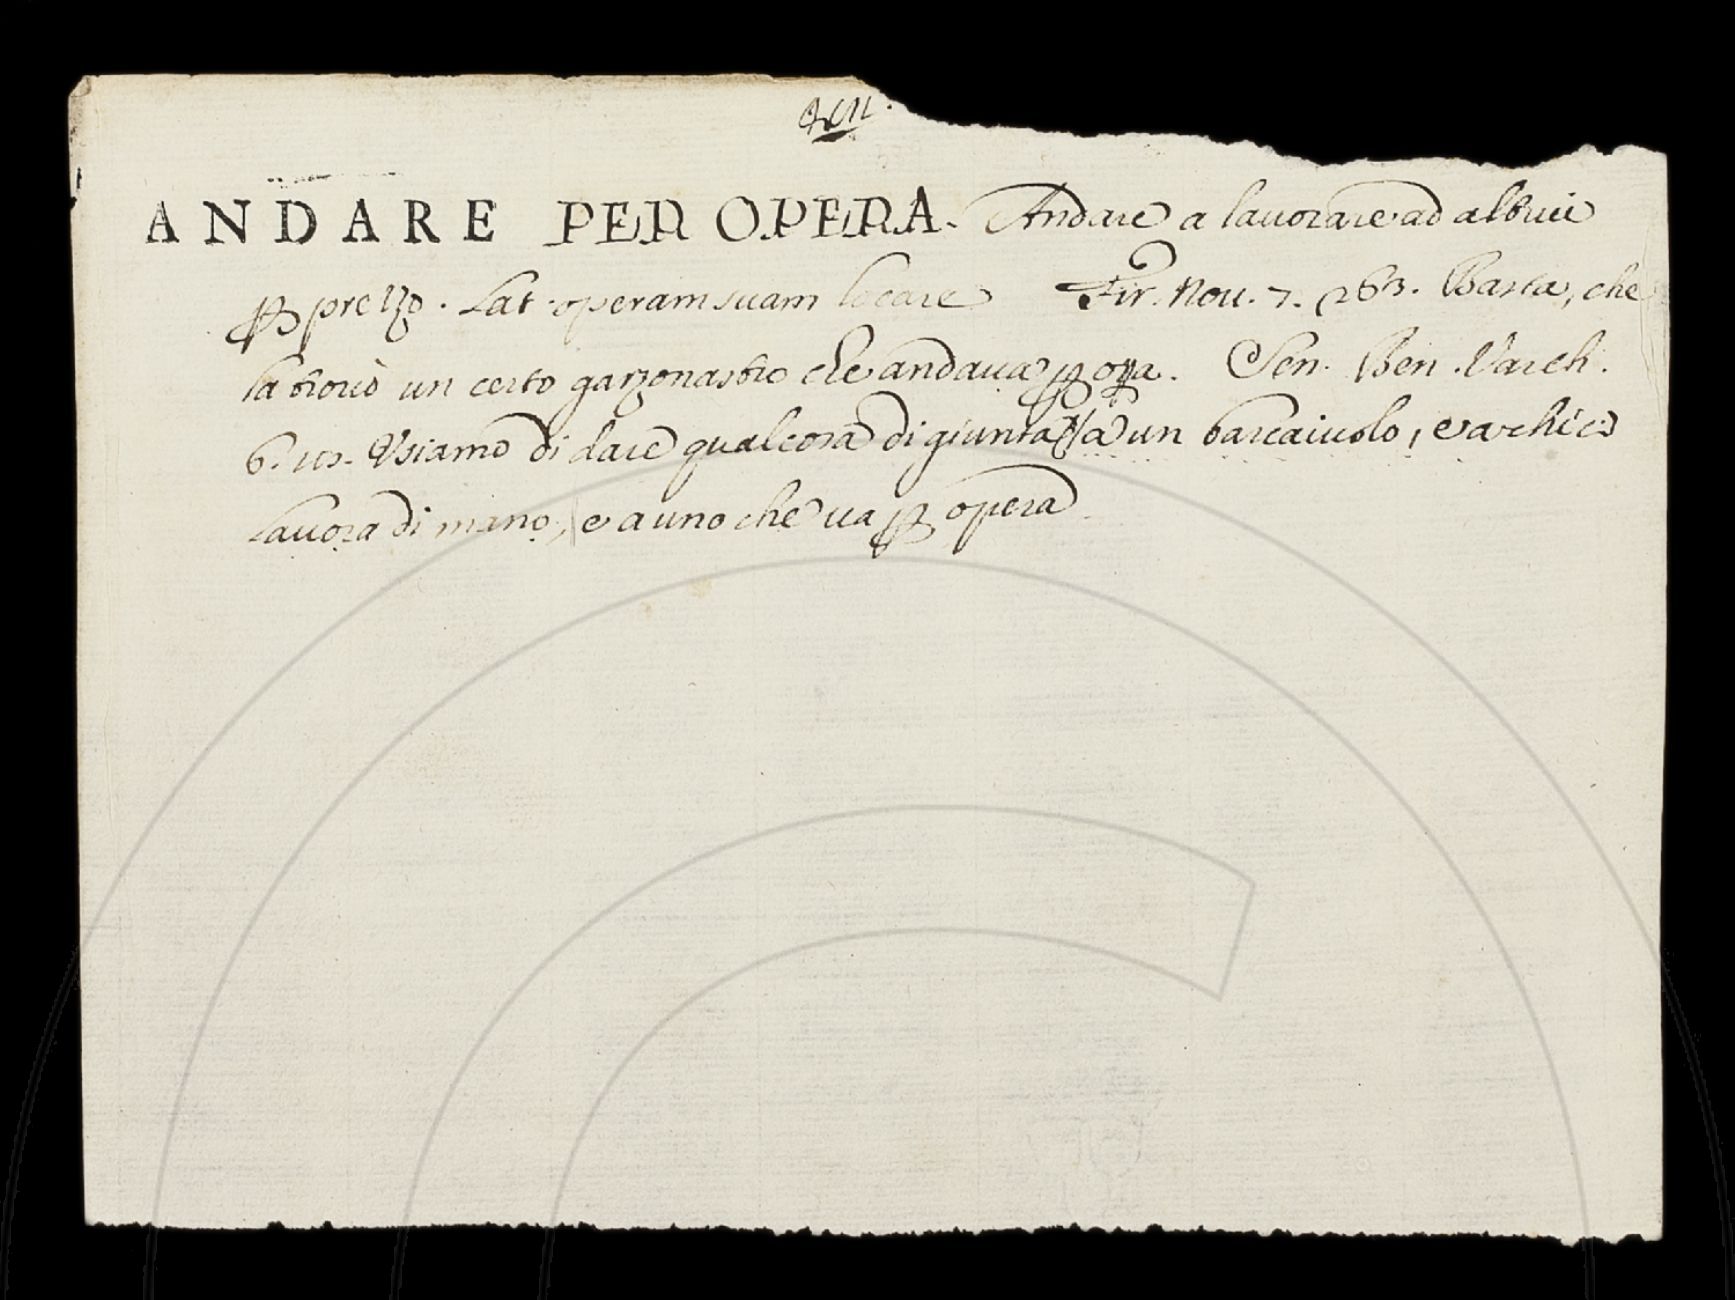 ANDARE PER OPERA. Andare a lavorare ad altrui
ꝑ prezzo. Lat. operam suam locare Fir. Nov. 7. 263. Basta, che
la trovò un certo garzonastro che andava ꝑ oꝑa. Sen. Ben. Varch.
6. Usiamo di dare qualcosa di giunta a un barcaiuolo, e a chi ci
lavora di mano, e a uno che va ꝑ opera